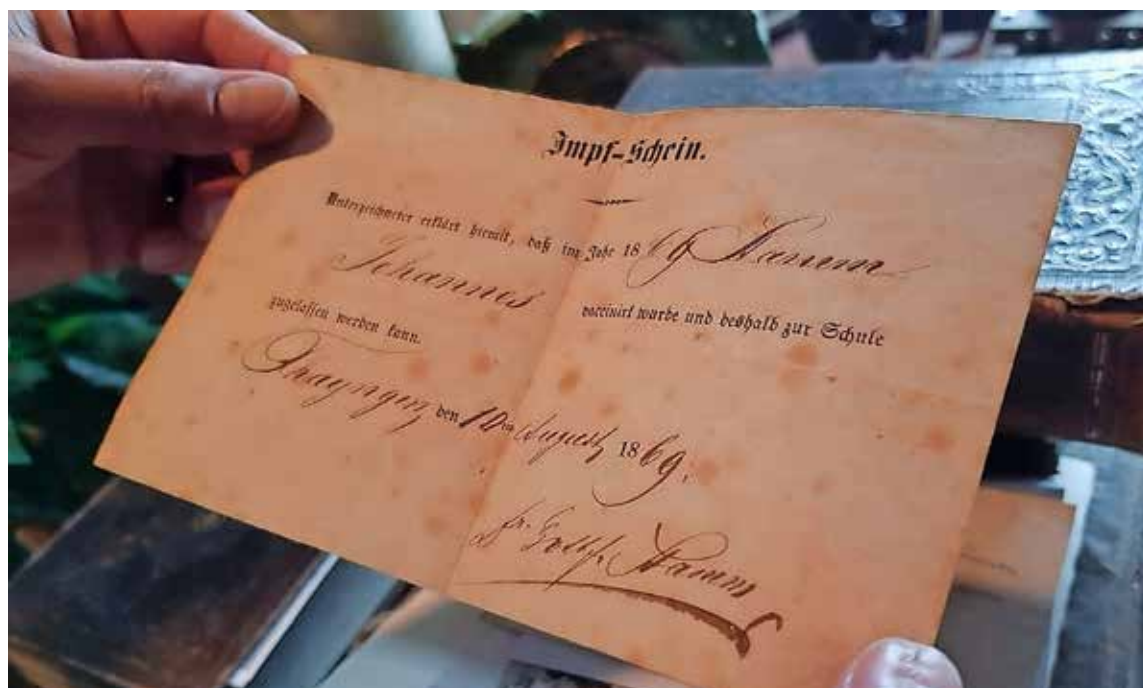 Impf-Schein.
Unterzeichneter erklärt hiemit, daß im Jahr 1869 Stamm
Johannes vaccinirt wurde und deshalb zur Schule
zugelassen werden kann.
Thayngen, den 10 August 1869.
Gottf. Stamm